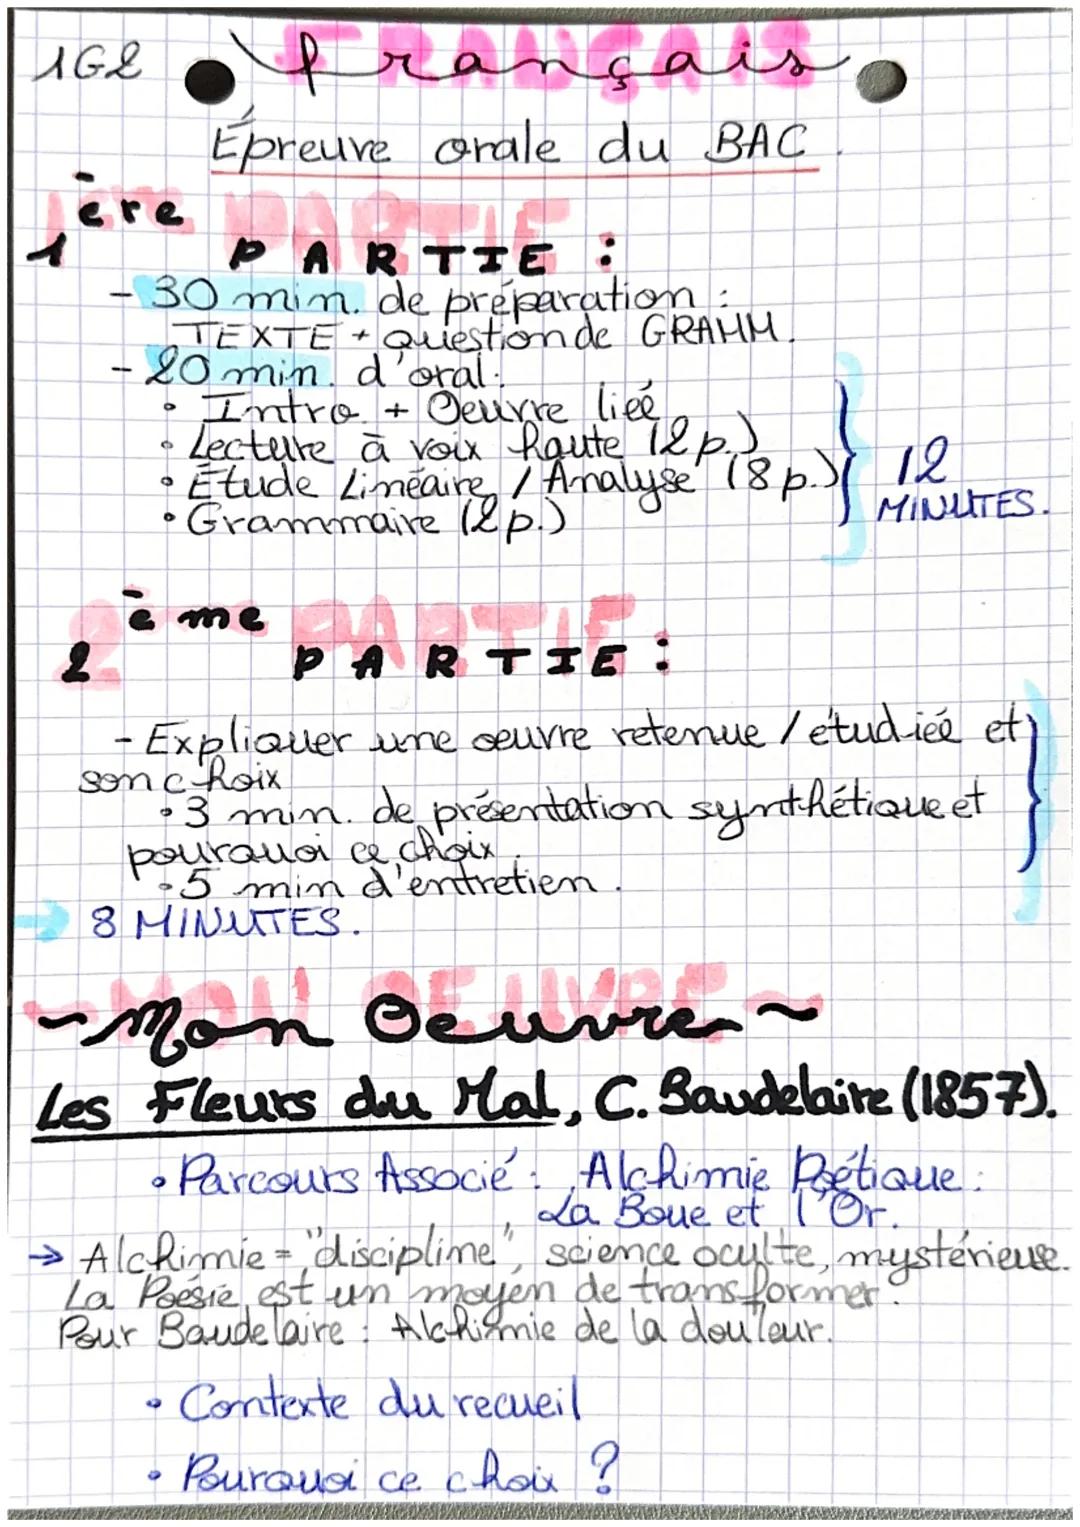 1G2 français
Épreuve orale du BAC.
1ère PARTIE :
- 30 min. de préparation :
TEXTE + question de GRAMM.
- 20 min. d'oral :
• Intro + Oeuvre liée
• Lecture à voix haute (2p.)
• Étude Linéaire / Analyse (8p.)
• Grammaire (2p.)
12
MINUTES.
2ème PARTIE :
- Expliquer une œuvre retenue / étudiée et
son choix
• 3 min. de présentation synthétique et
pourquoi ce choix.
• 5 min d'entretien.
→ 8 MINUTES.
~ Mon Oeuvre ~
Les Fleurs du Mal, C. Baudelaire (1857).
• Parcours Associé : Alchimie Poétique :
La Boue et l'Or.
→ Alchimie = "discipline", science oculte, mystérieuse.
La Poésie est un moyen de transformer.
Pour Baudelaire : Alchimie de la douleur.
• Contexte du recueil
• Pourquoi ce choix ?